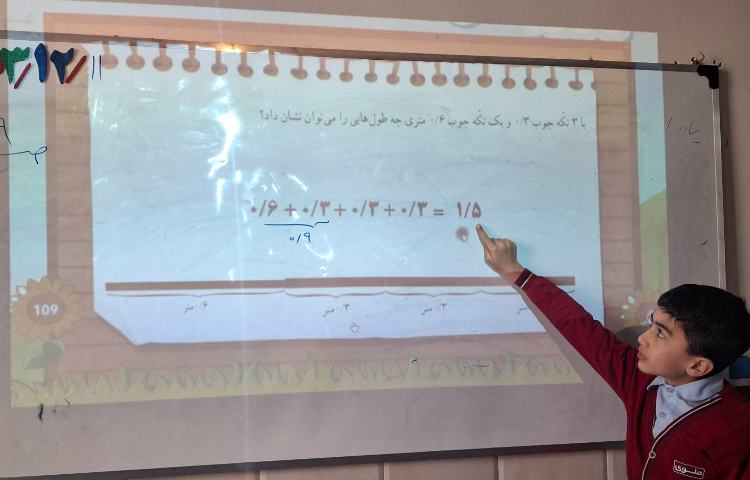 ۱۲/۱۱
با ۳ تکّه چوب ۰/۳ و یک تکّه چوب ۰/۶ متری چه طول‌هایی را می‌توان نشان داد؟
۰/۶ + ۰/۳ + ۰/۳ + ۰/۳ = ۱/۵
۰/۹
۰/۶ متر
۰/۳ متر
۰/۳ متر
متر
109
علوی